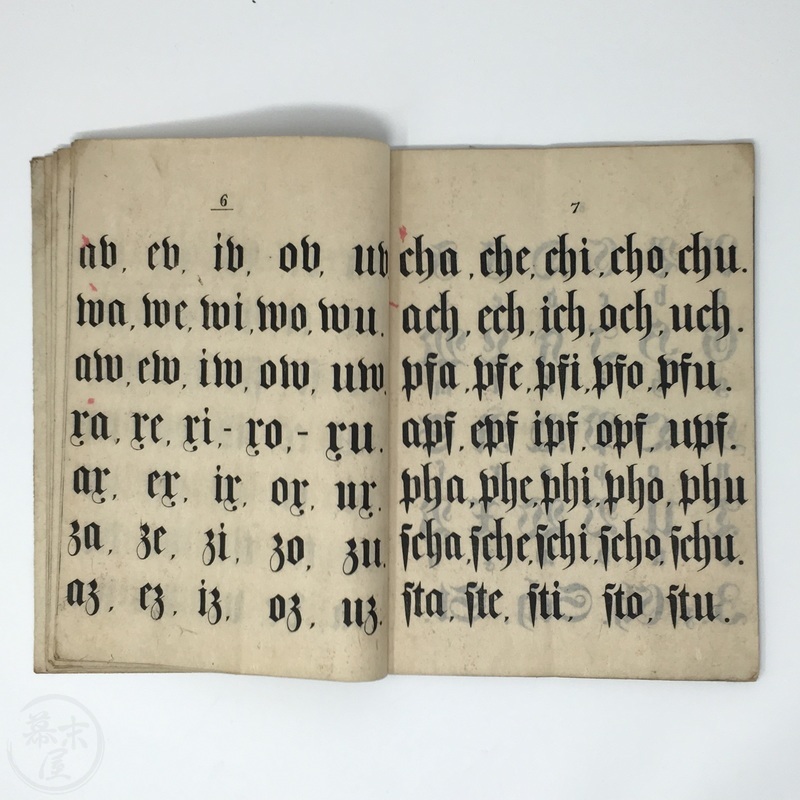 6
av, ev, iv, ov, uv
wa, we, wi, wo, wu.
aw, ew, iw, ow, uw.
xa, xe, xi,- xo,- xu.
ax, ex, ix, ox, ux.
za, ze, zi, zo, zu.
az, ez, iz, oz, uz.
7
cha, che, chi, cho, chu.
ach, ech, ich, och, uch.
pfa, pfe, pfi, pfo, pfu.
apf, epf ipf, opf, upf.
pha, phe, phi, pho, phu
ſcha, ſche, ſchi, ſcho, ſchu.
ſta, ſte, ſti, ſto, ſtu.
幕末屋